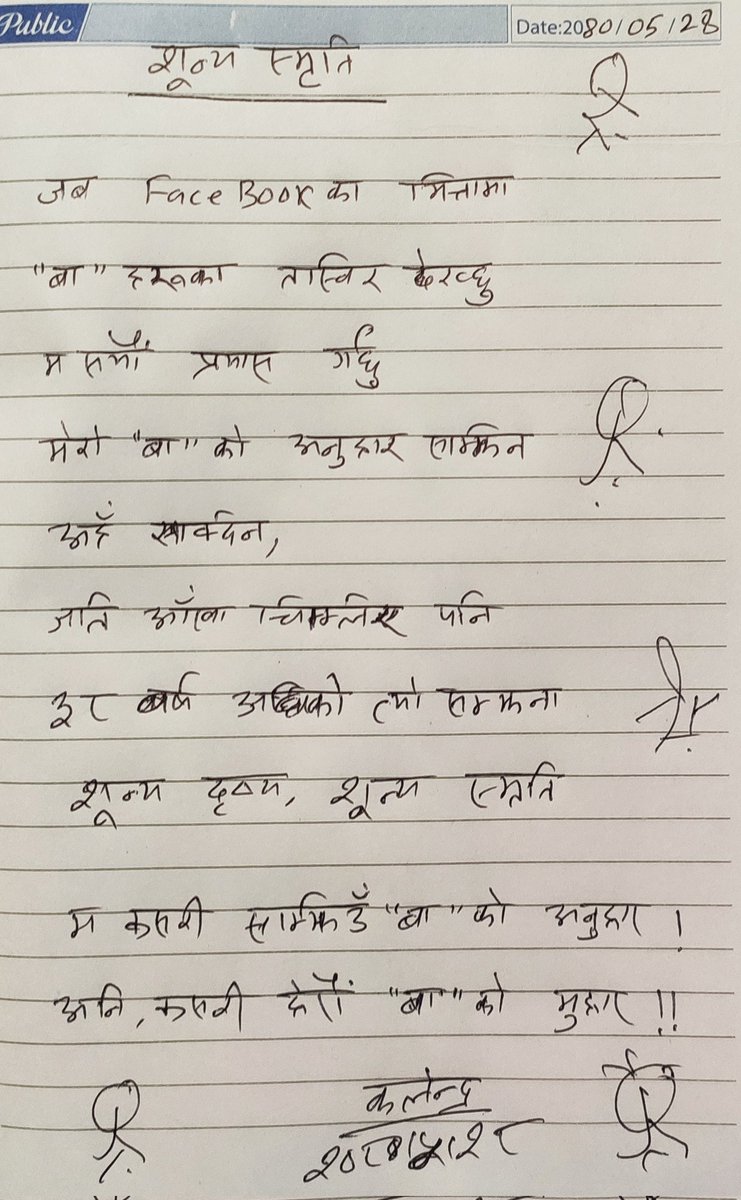 Public
Date:2080/05/28
शून्य स्मृति
जब FaceBook का भित्तामा
"बा" हरूका तास्विर देख्छु
म सयौं प्रयास गर्छु
मेरो "बा" को अनुहार सम्झिन
अहँ सक्दिन,
जति आँखा चिम्लिए पनि
३८ वर्ष अघिको त्यो सम्झना
शून्य दृश्य, शून्य स्मृति
म कसरी सम्झिउँ "बा" को अनुहार !
अनि, कसरी हेरौं "बा" को मुहार !!
कलेन्द्र